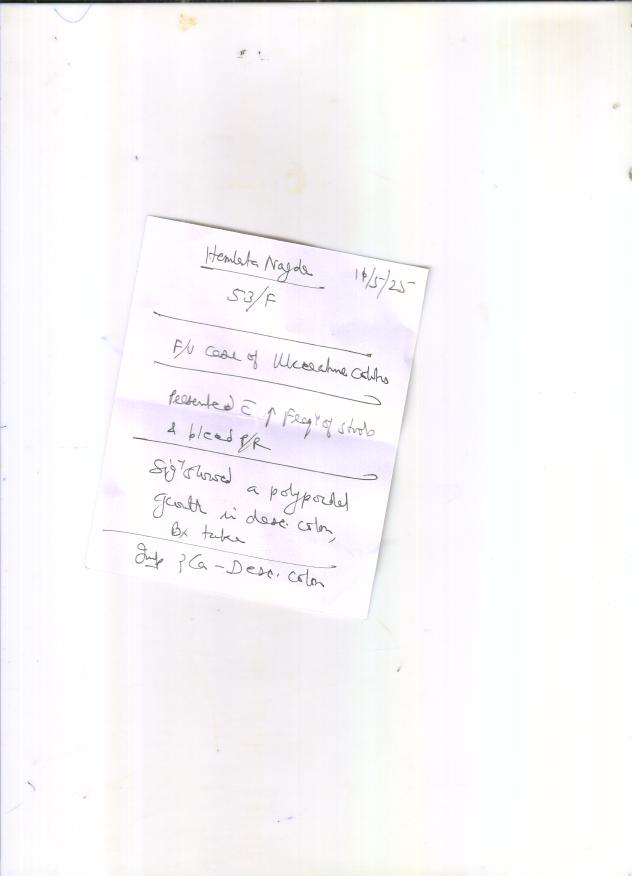 Hemlata Nagda
53/F
F/U case of Ulcerative colitis
Presented c̄ ↑ Freqʸ of stools
& bleed P/R
Sigʸ showed a polypoidal
growth in desc. colon,
Bx taken
Imp ? Ca - Desc. colon